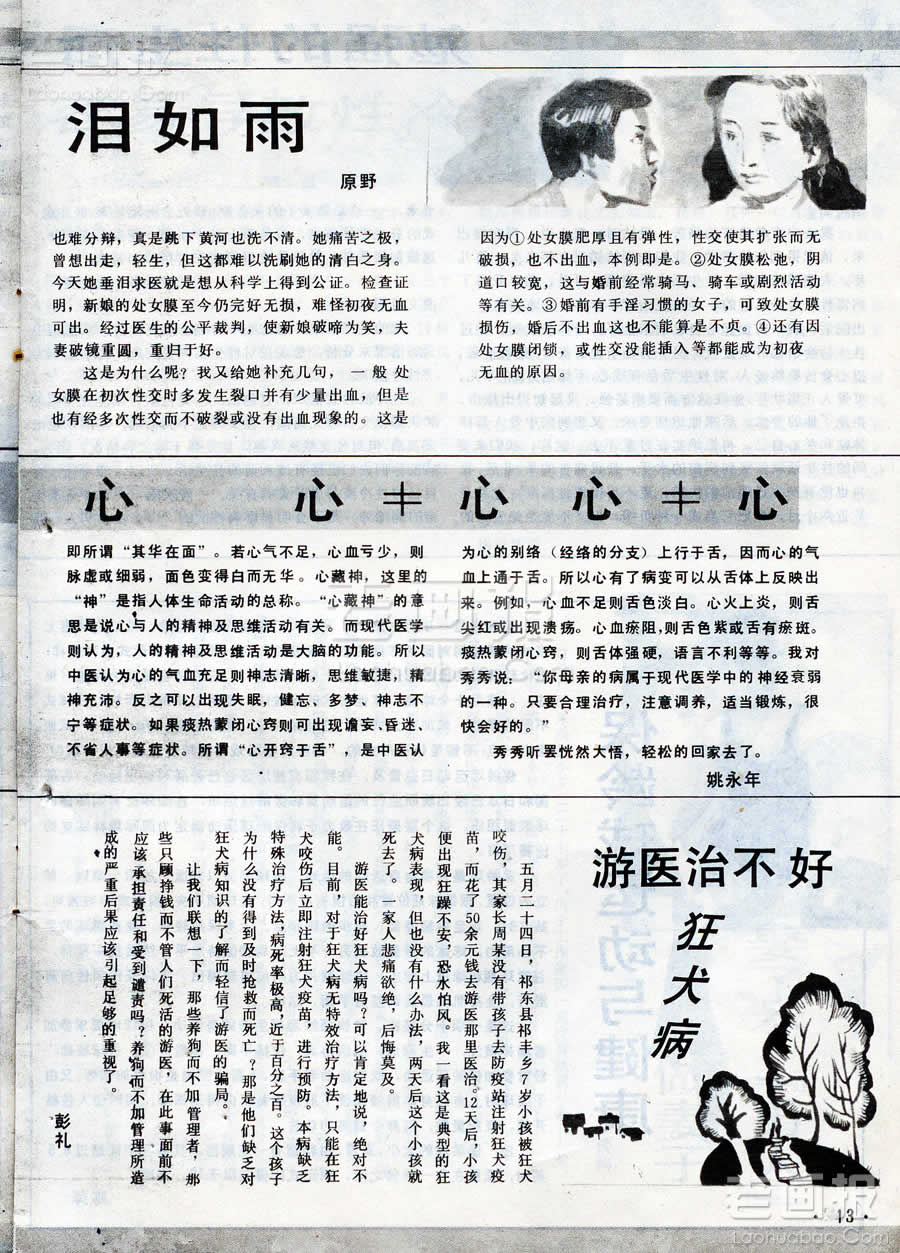 泪如雨
原野
也难分辩，真是跳下黄河也洗不清。她痛苦之极，
曾想出走，轻生，但这都难以洗刷她的清白之身。
今天她垂泪求医就是想从科学上得到公证。检查证
明，新娘的处女膜至今仍完好无损，难怪初夜无血
可出。经过医生的公平裁判，使新娘破啼为笑，夫
妻破镜重圆，重归于好。
这是为什么呢？我又给她补充几句，一般处
女膜在初次性交时多发生裂口并有少量出血，但是
也有经多次性交而不破裂或没有出血现象的。这是
因为①处女膜肥厚且有弹性，性交使其扩张而无
破损，也不出血，本例即是。②处女膜松弛，阴
道口较宽，这与婚前经常骑马、骑车或剧烈活动
等有关。③婚前有手淫习惯的女子，可致处女膜
损伤，婚后不出血这也不能算是不贞。④还有因
处女膜闭锁，或性交没能插入等都能成为初夜
无血的原因。
心 心≠心 心≠心
即所谓“其华在面”。若心气不足，心血亏少，则
脉虚或细弱，面色变得白而无华。心藏神，这里的
“神”是指人体生命活动的总称。“心藏神”的意
思是说心与人的精神及思维活动有关。而现代医学
则认为，人的精神及思维活动是大脑的功能。所以
中医认为心的气血充足则神志清晰，思维敏捷，精
神充沛。反之可以出现失眠，健忘，多梦，神志不
宁等症状。如果痰热蒙闭心窍则可出现谵妄、昏迷、
不省人事等症状。所谓“心开窍于舌”，是中医认
为心的别络（经络的分支）上行于舌，因而心的气
血上通于舌。所以心有了病变可以从舌体上反映出
来。例如，心血不足则舌色淡白。心火上炎，则舌
尖红或出现溃疡。心血瘀阻，则舌色紫或舌有瘀斑。
痰热蒙闭心窍，则舌体强硬，语言不利等等。我对
秀秀说：“你母亲的病属于现代医学中的神经衰弱
的一种。只要合理治疗，注意调养，适当锻炼，很
快会好的。”
秀秀听罢恍然大悟，轻松的回家去了。
姚永年
游医治不好
狂犬病
五月二十四日，祁东县祁丰乡7岁小孩被狂犬
咬伤，其家长周某没有带孩子去防疫站注射狂犬疫
苗，而花了50余元钱去游医那里医治。12天后，小孩
便出现狂躁不安、恐水怕风。我一看这是典型的狂
犬病表现，但也没有什么办法，两天后这个小孩就
死去了。家人悲痛欲绝，后悔莫及。
游医能治好狂犬病吗？可以肯定地说，绝对不
能。目前，对于狂犬病无特效治疗方法，只能在狂
犬咬伤后立即注射狂犬疫苗，进行预防。本病缺乏
特殊治疗方法，病死率极高，近于百分之百。这个孩子
为什么没有得到及时抢救而死亡？那是他们缺乏对
狂犬病知识的了解而轻信了游医的骗局。
让我们联想一下，那些养狗而不加管理者，那
些只顾挣钱而不管人们死活的游医，在此事面前不
应该承担责任和受到谴责吗？养狗而不加管理所造
成的严重后果应该引起足够的重视了。
彭礼
·13·
老画报
Laohuabao.Com